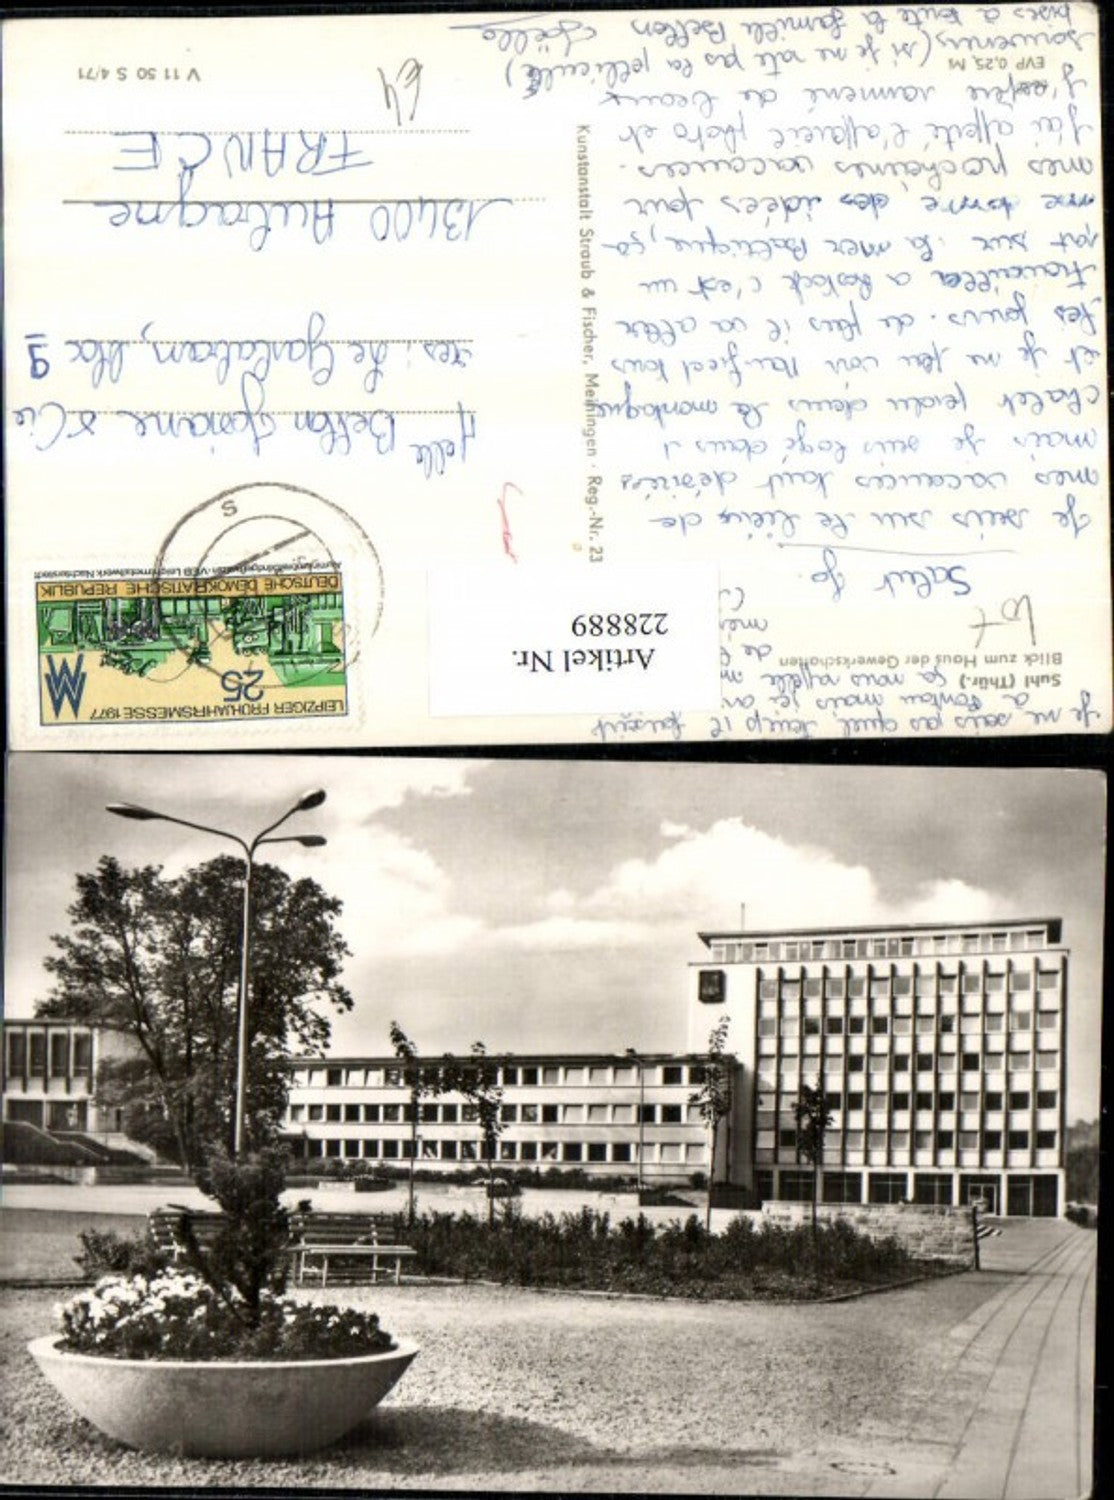 Suhl (Thür.)
Blick zum Haus der Gewerkschaften
Salut Jo.
Je suis sur le lieu de
mes vacances tant désirées
mais je suis logé dans 1
chalet perdu dans la montagne
et je ne peu voir Manfred tous
les jours. de plus il va aller
travailler a Rostock c'est un
port sur la mer Baltique, ça
me donne des idées pour
mes prochaines vacances.
J'ai apporté l'appareil photo et
j'espère ramené de beaux
souvenirs (si je ne rate pas la pellicule)
bises a toute la famille Bellon
Joëlle
Je ne sais pas quel temps il faisait
a Toulon mais ici
ça nous rappelle
EVP 0,25 M
V 11 50 S 4/71
Kunstanstalt Straub & Fischer, Meiningen · Reg.-Nr. 23
LEIPZIGER FRÜHJAHRSMESSE 1977
25
DEUTSCHE DEMOKRATISCHE REPUBLIK
Melle Bellon Josiane & Cie
res: Le Garlaban, bloc 9
13400 Aubagne
FRANCE
Artikel Nr.
228889